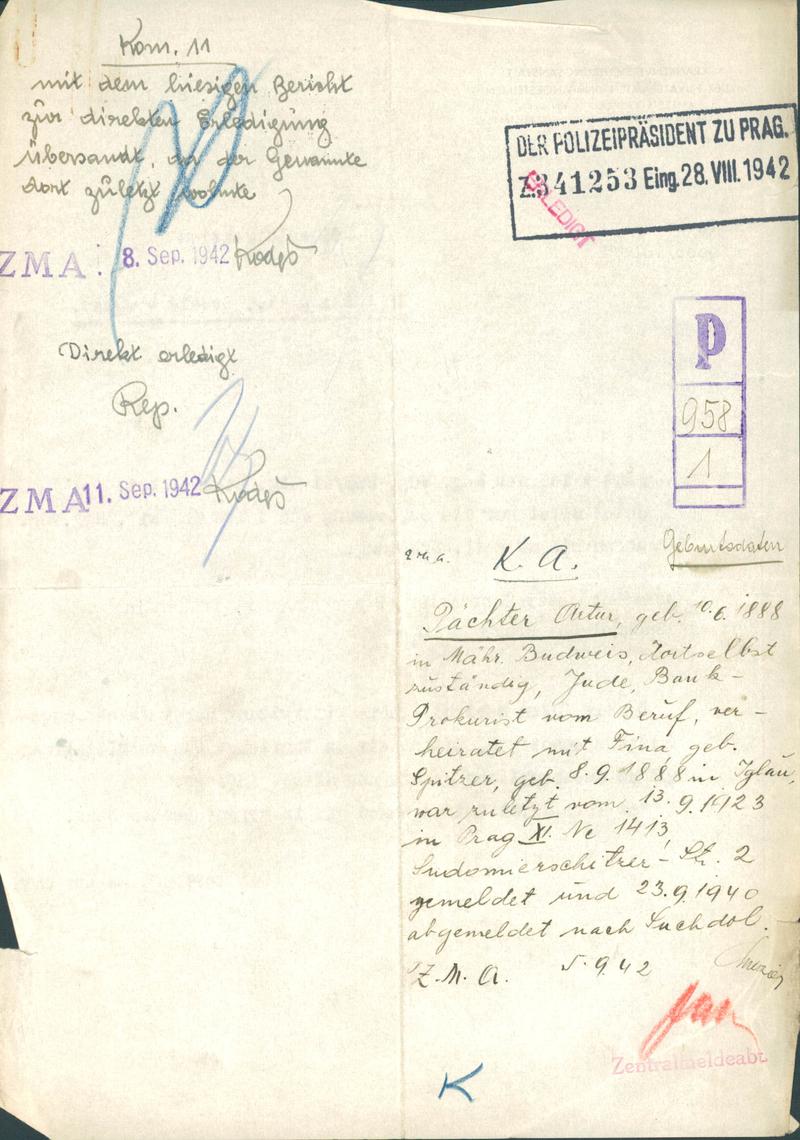 Kom. 11
mit dem hiesigen Bericht
zur direkten Erledigung
übersandt, da der Genannte
dort zuletzt wohnte
ZMA. 8. Sep. 1942 Kodeš
Direkt erledigt
Rep.
ZMA 11. Sep. 1942 Kodeš
DER POLIZEIPRÄSIDENT ZU PRAG.
Z. 341253 Eing. 28. VIII. 1942
ERLEDIGT
P
958
1
Geburtsdaten
Z.M.A. K. A.
Pächter Artur, geb. 10.6.1888
in Mähr. Budweis, dortselbst
zuständig, Jude, Bank-
Prokurist vom Beruf, ver-
heiratet mit Fina geb.
Spitzer, geb. 8.9.1888 in Iglau,
war zuletzt vom 13.9.1923
in Prag XI. Nc 1413
Sudomierschitzer-Str. 2
gemeldet und 23.9.1940
abgemeldet nach Suchdol.
Z.M.A. 5.9.42
Zentralmeldeabt.
K